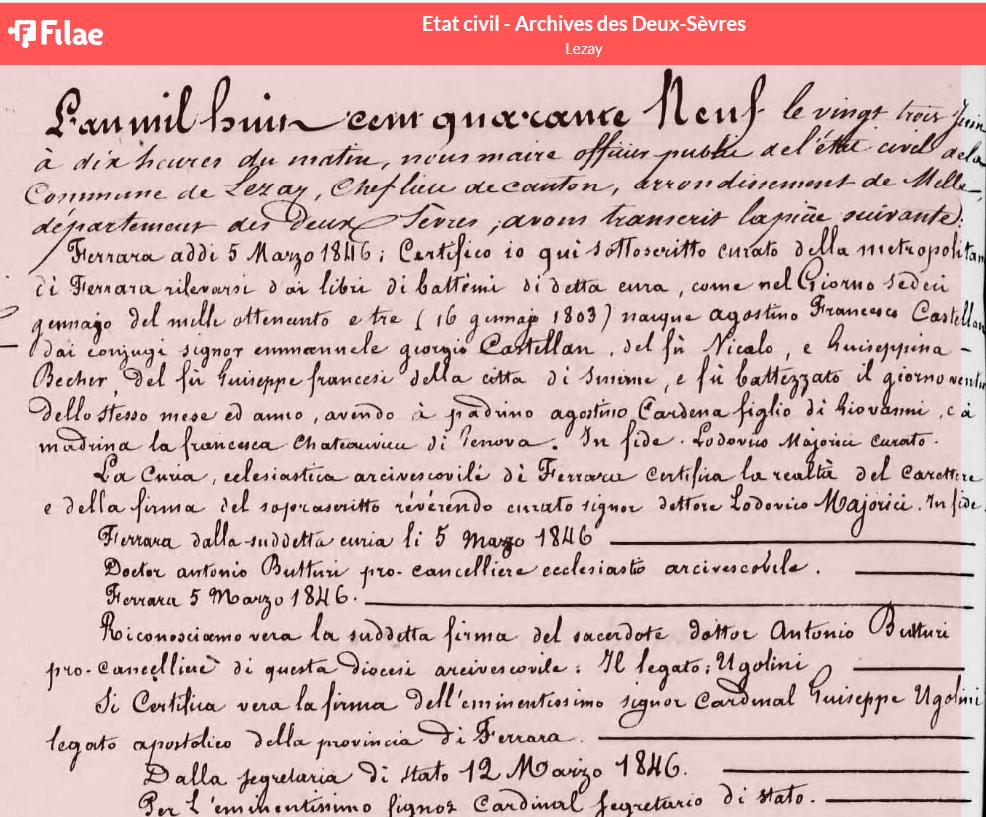 Filae
Etat civil - Archives des Deux-Sèvres
Lezay
L'an mil huit cent quarante Neuf le vingt trois Juin
à dix heures du matin, nous maire officier public de l'état civil de la
Commune de Lezay, Chef lieu de canton, arrondissement de Melle,
département des Deux Sèvres, avons transcrit la pièce suivante.
Ferrara addi 5 Marzo 1846; Certifico io qui sottoscritto curato della metropolitan
di Ferrara rilevarsi d'ai libri di battemi di detta cura, come nel Giorno Sedici
gennajo del mille ottencento e tre (16 gennajo 1803) nacque agostino Francesco Castellan
dai conjugi signor emmanuele giorgio Castellan, del fù Nicalo, e Guiseppina -
Becher, del fù Guiseppe francesi della citta di Smirne, e fù battezzato il giorno
dello stesso mese ed anno, avendo à padrino agostino Cardena figlio di Giovanni, e à
madrina la francesca Chateauvieu di Genova. In fide. Lodovico Majorici curato.
La Curia, eclesiastica arcivescovile di Ferrara certifica la realtà del carattere
e della firma del soprascritto révérendo curato signor dottore Lodovico Majorici. In fide.
Ferrara dalla suddetta curia li 5 Marzo 1846
Doctor antonio Butturi pro-cancelliere ecclesiasto arcivescovile.
Ferrara 5 Marzo 1846.
Riconosciamo vera la suddetta firma del sacerdote dottor Antonio Butturi
pro-cancelliere di questa diocesi arcivescovile: Il legato: Ugolini
Si Certifica vera la firma dell'eminentissimo signor Cardenal Guiseppe Ugolini
legato apostolico della provincia di Ferrara.
Dalla segretaria di stato 12 Marzo 1846.
Per l'eminentissimo signor Cardinal segretario di stato.